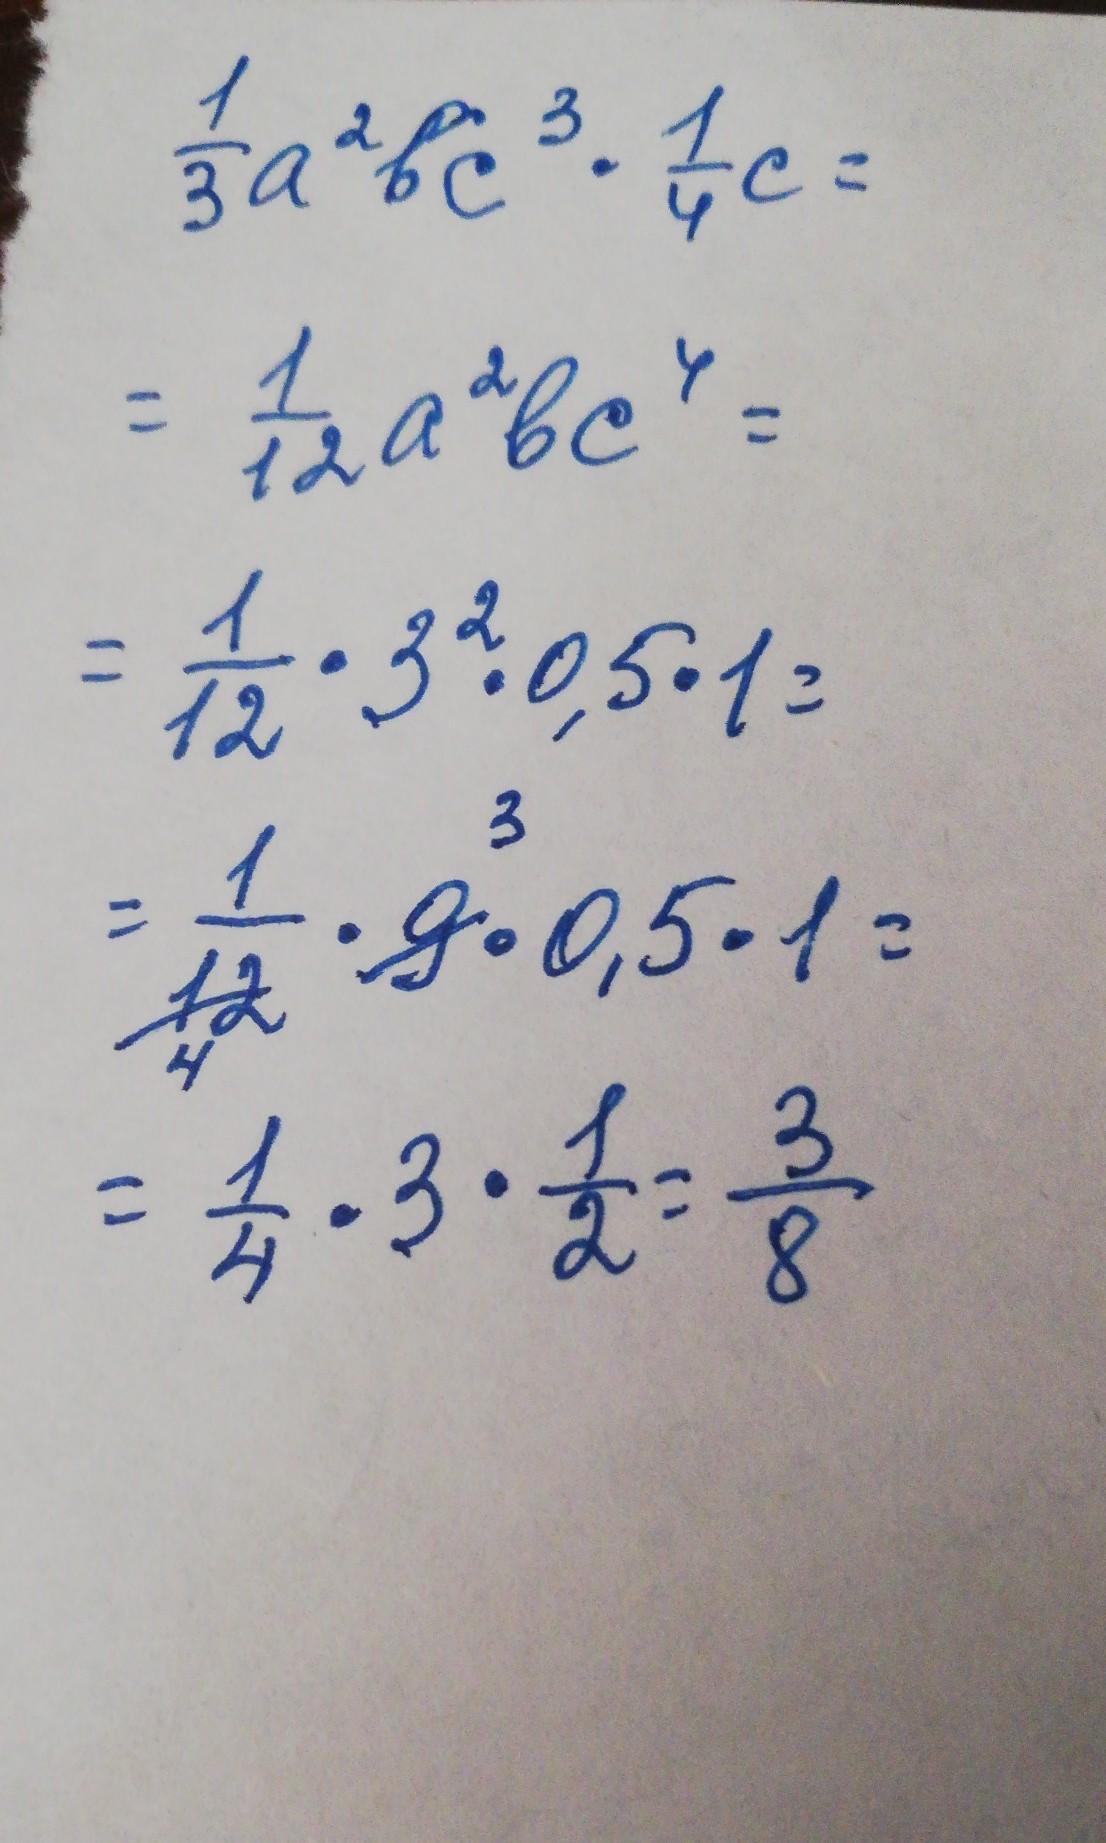 1/3 a²bc³ · 1/4 c =
= 1/12 a²bc⁴ =
= 1/12 · 3² · 0,5 · 1 =
= 1/12 4 · 9 3 · 0,5 · 1 =
= 1/4 · 3 · 1/2 = 3/8